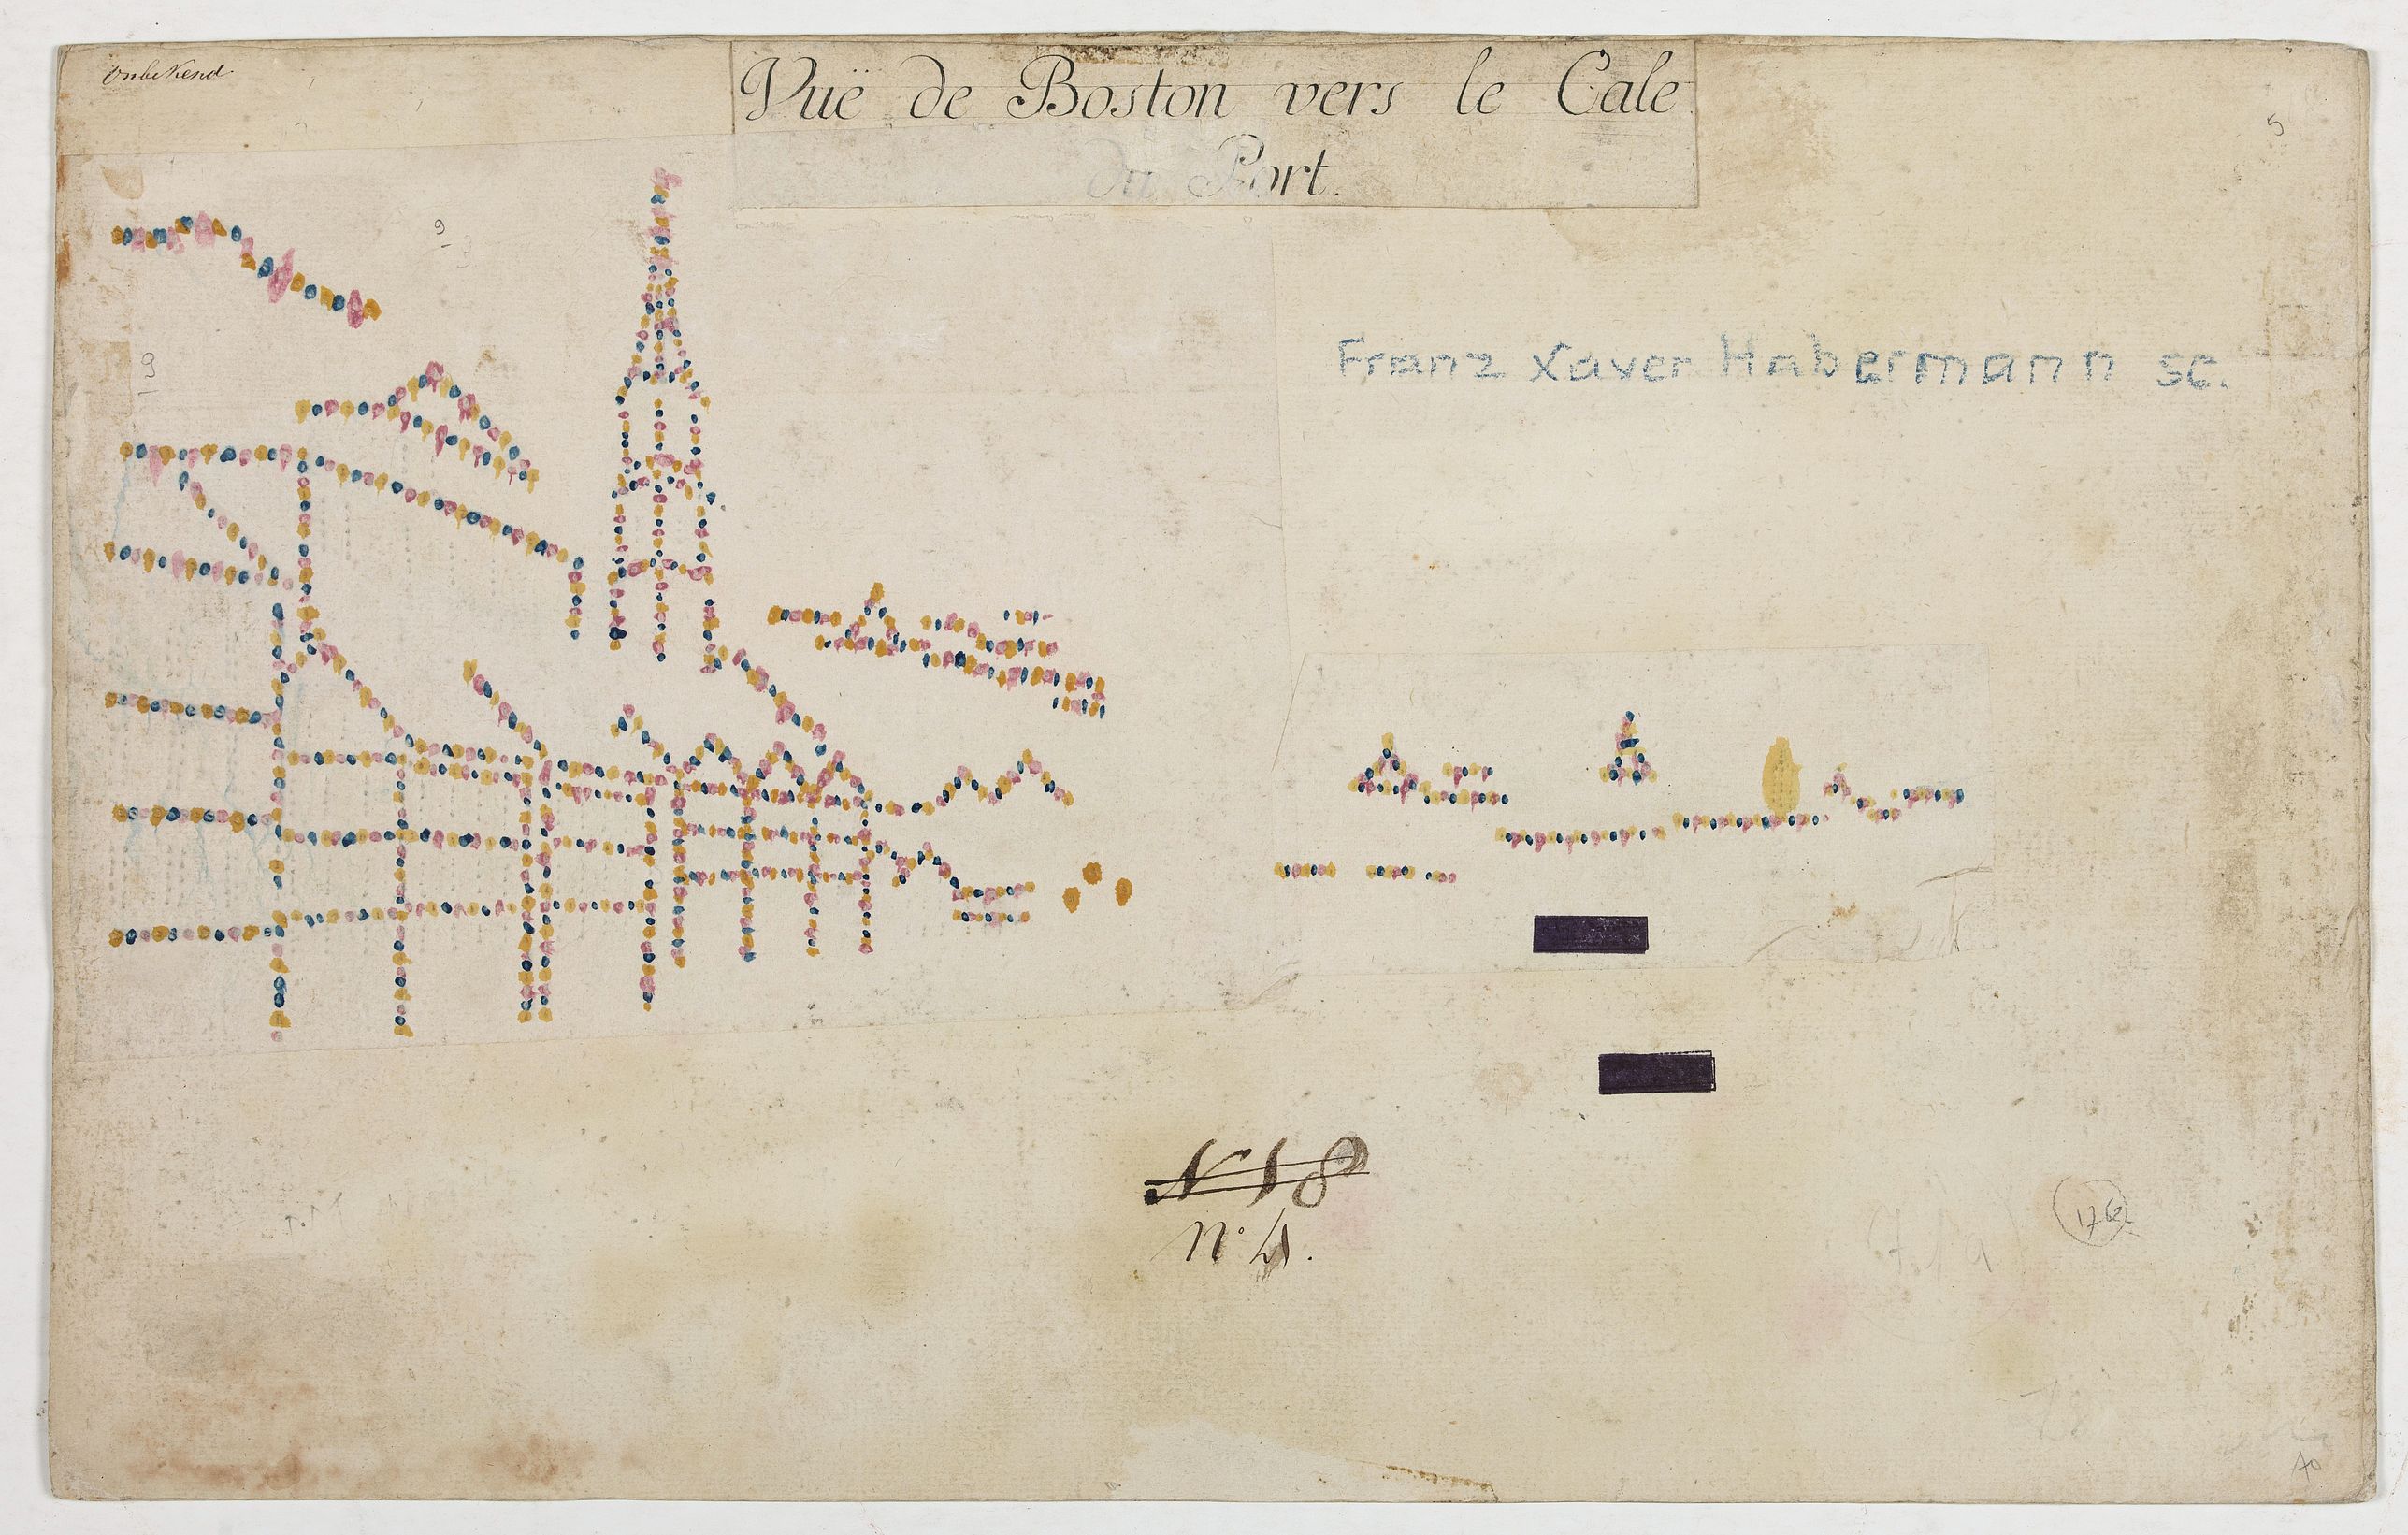 Onbekend
Vuë de Boston vers le Cale
du Port.
5
9
9
Franz Xaver Habermann sc.
N 18
n° 4.
176
40